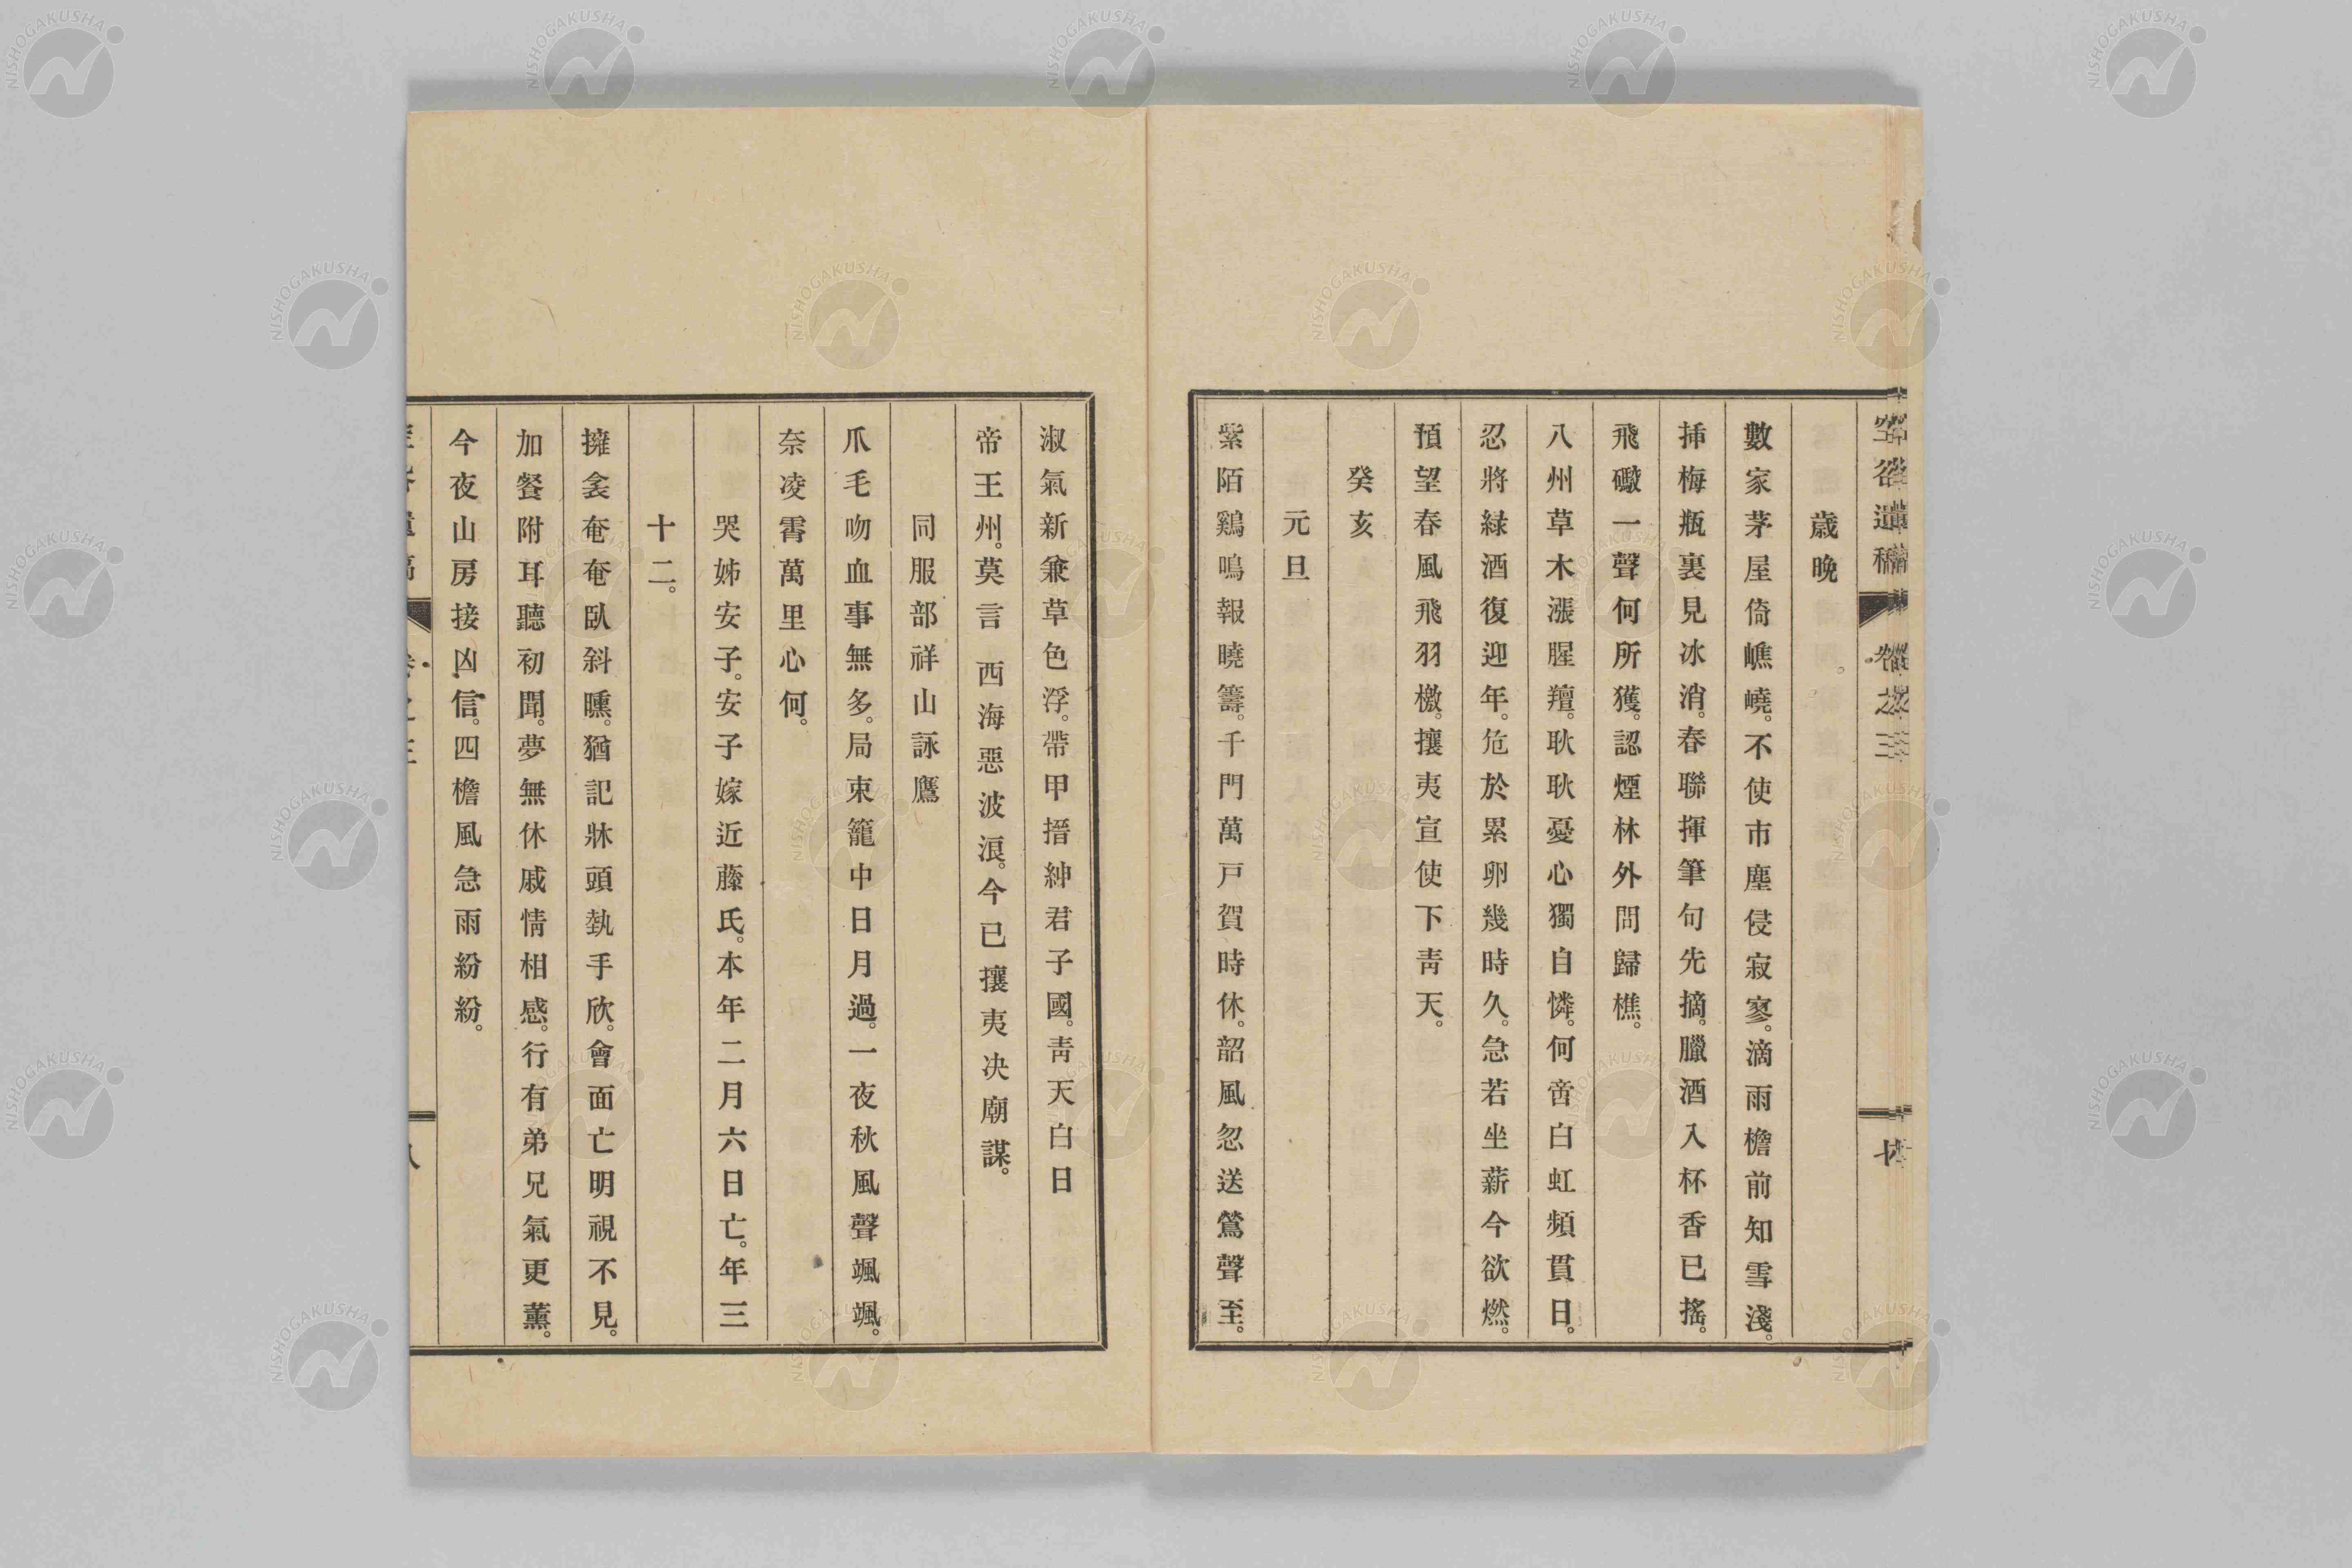 歲晚
數家茅屋倚嶕嶢。不使市塵侵寂寥。滴雨檐前知雪淺。
挿梅瓶裏見冰消。春聯揮筆句先摘。臘酒入杯香已搖。
飛礮一聲何所獲。認煙林外問歸樵。
八州草木漲腥羶。耿耿憂心獨自憐。何啻白虹頻貫日。
忍將緑酒復迎年。危於累卵幾時久。急若坐薪今欲燃。
預望春風飛羽檄。攘夷宣使下靑天。
癸亥
元旦
紫陌鷄鳴報曉籌。千門萬戸賀時休。韶風忽送鶯聲至。
淑氣新兼草色浮。帶甲搢紳君子國。靑天白日
帝王州。莫言西海惡波浪。今已攘夷决廟謀。
同服部祥山詠鷹
爪毛吻血事無多。局束籠中日月過。一夜秋風聲颯颯。
奈凌霄萬里心何。
哭姊安子。安子嫁近藤氏。本年二月六日亡。年三
十二。
擁衾奄奄臥斜曛。猶記牀頭執手欣。會面亡明視不見。
加餐附耳聽初聞。夢無休戚情相感。行有弟兄氣更薰。
今夜山房接凶信。四檐風急雨紛紛。